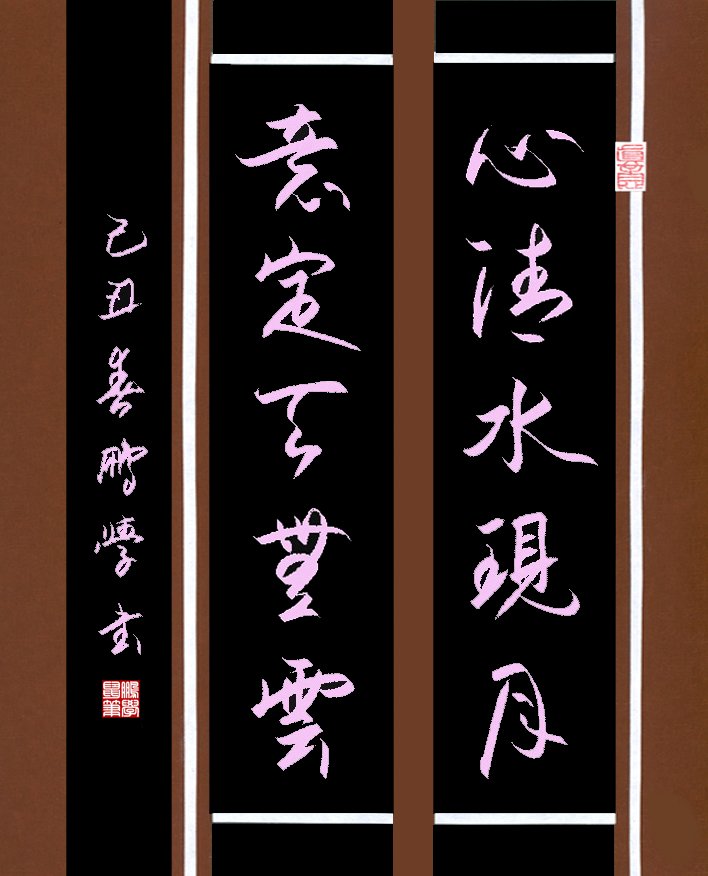 心清水現月
意定天無雲
己丑春鵬學書
鵬學